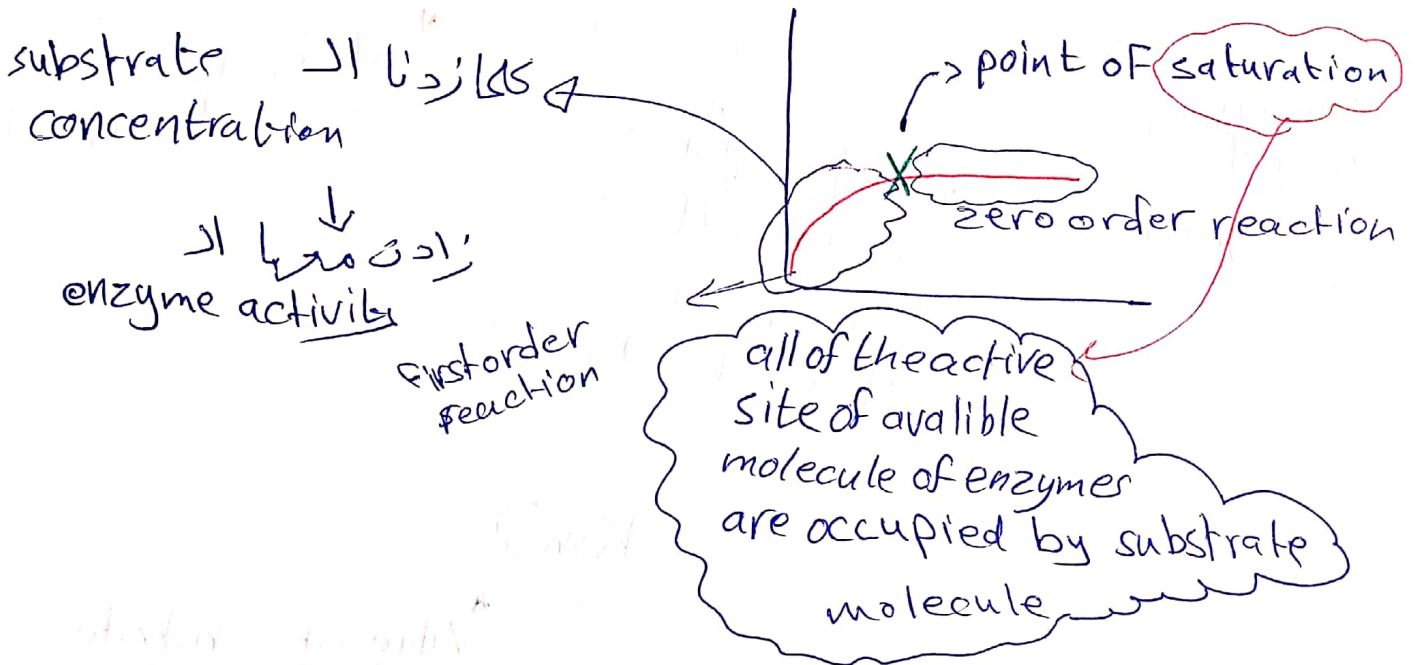 كل ما زدنا الـ substrate
concentration
زادت معها الـ
enzyme activity
point of saturation
zero order reaction
first order
reaction
all of the active
site of avalible
molecule of enzymes
are occupied by substrate
molecule